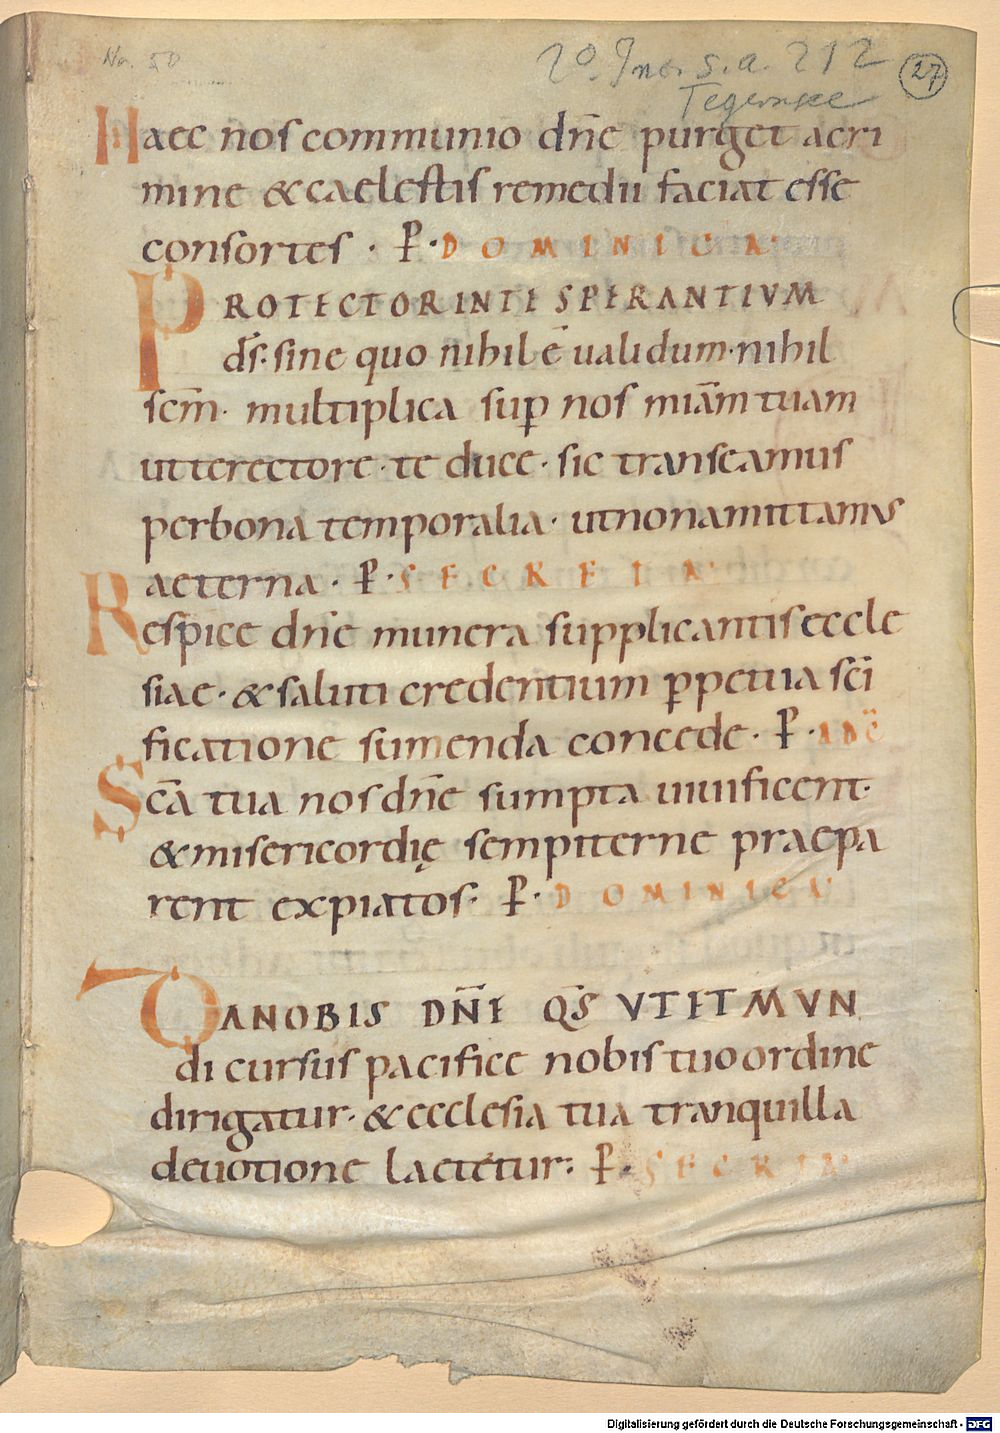 No. 50
2o. Inc. s. a. 212
Tegernsee
27
Haec nos communio dn̄e purget acri
mine & caelestis remedii faciat esse
consortes · P̄ · DOMINICA
PROTECTOR IN TE SPERANTIVM
ds̄ · sine quo nihil ē ualidum · nihil
scm̄ · multiplica sup̱ nos miām tuam
ut te rectore · te duce · sic transeamus
per bona temporalia · ut non amittamus
aeterna · P̄ · SECRETA
Respice dn̄e munera supplicantis eccle
siae · & saluti credentium p̱petua sci
ficatione sumenda concede · P̄ · AD C̄
Scā tua nos dn̄e sumpta uiuificent ·
& misericordię sempiterne praepa
rent expiatos · P̄ · DOMINICA
DA NOBIS DN̄E QS̄ VT ET MVN
di cursus pacifice nobis tuo ordine
dirigatur · & ecclesia tua tranquilla
deuotione laetetur : P̄ · SECRETA
Digitalisierung gefördert durch die Deutsche Forschungsgemeinschaft - DFG